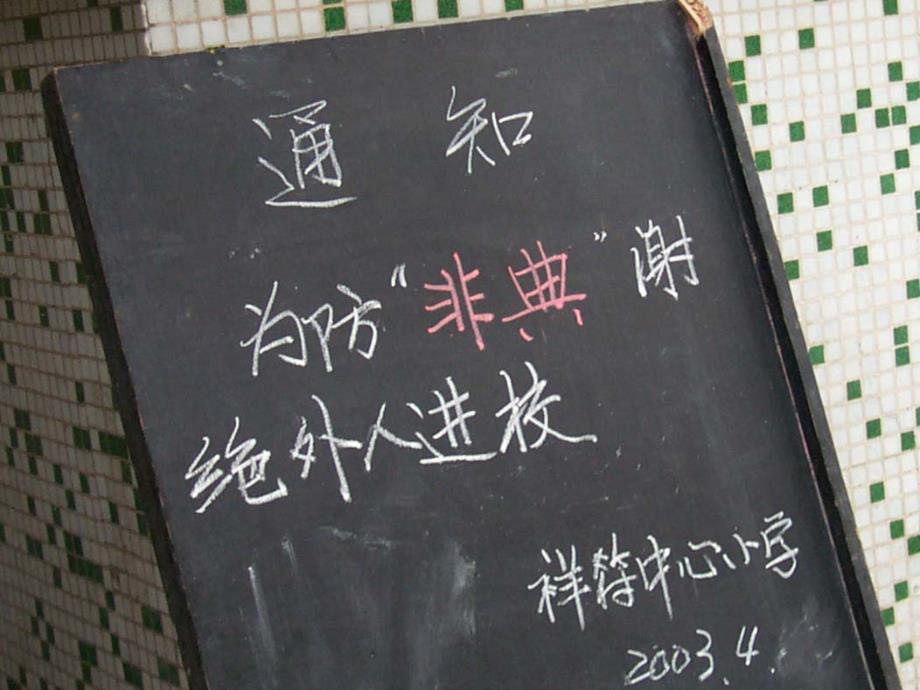 通知
为防“非典”谢
绝外人进校
祥符中心小学
2003.4.